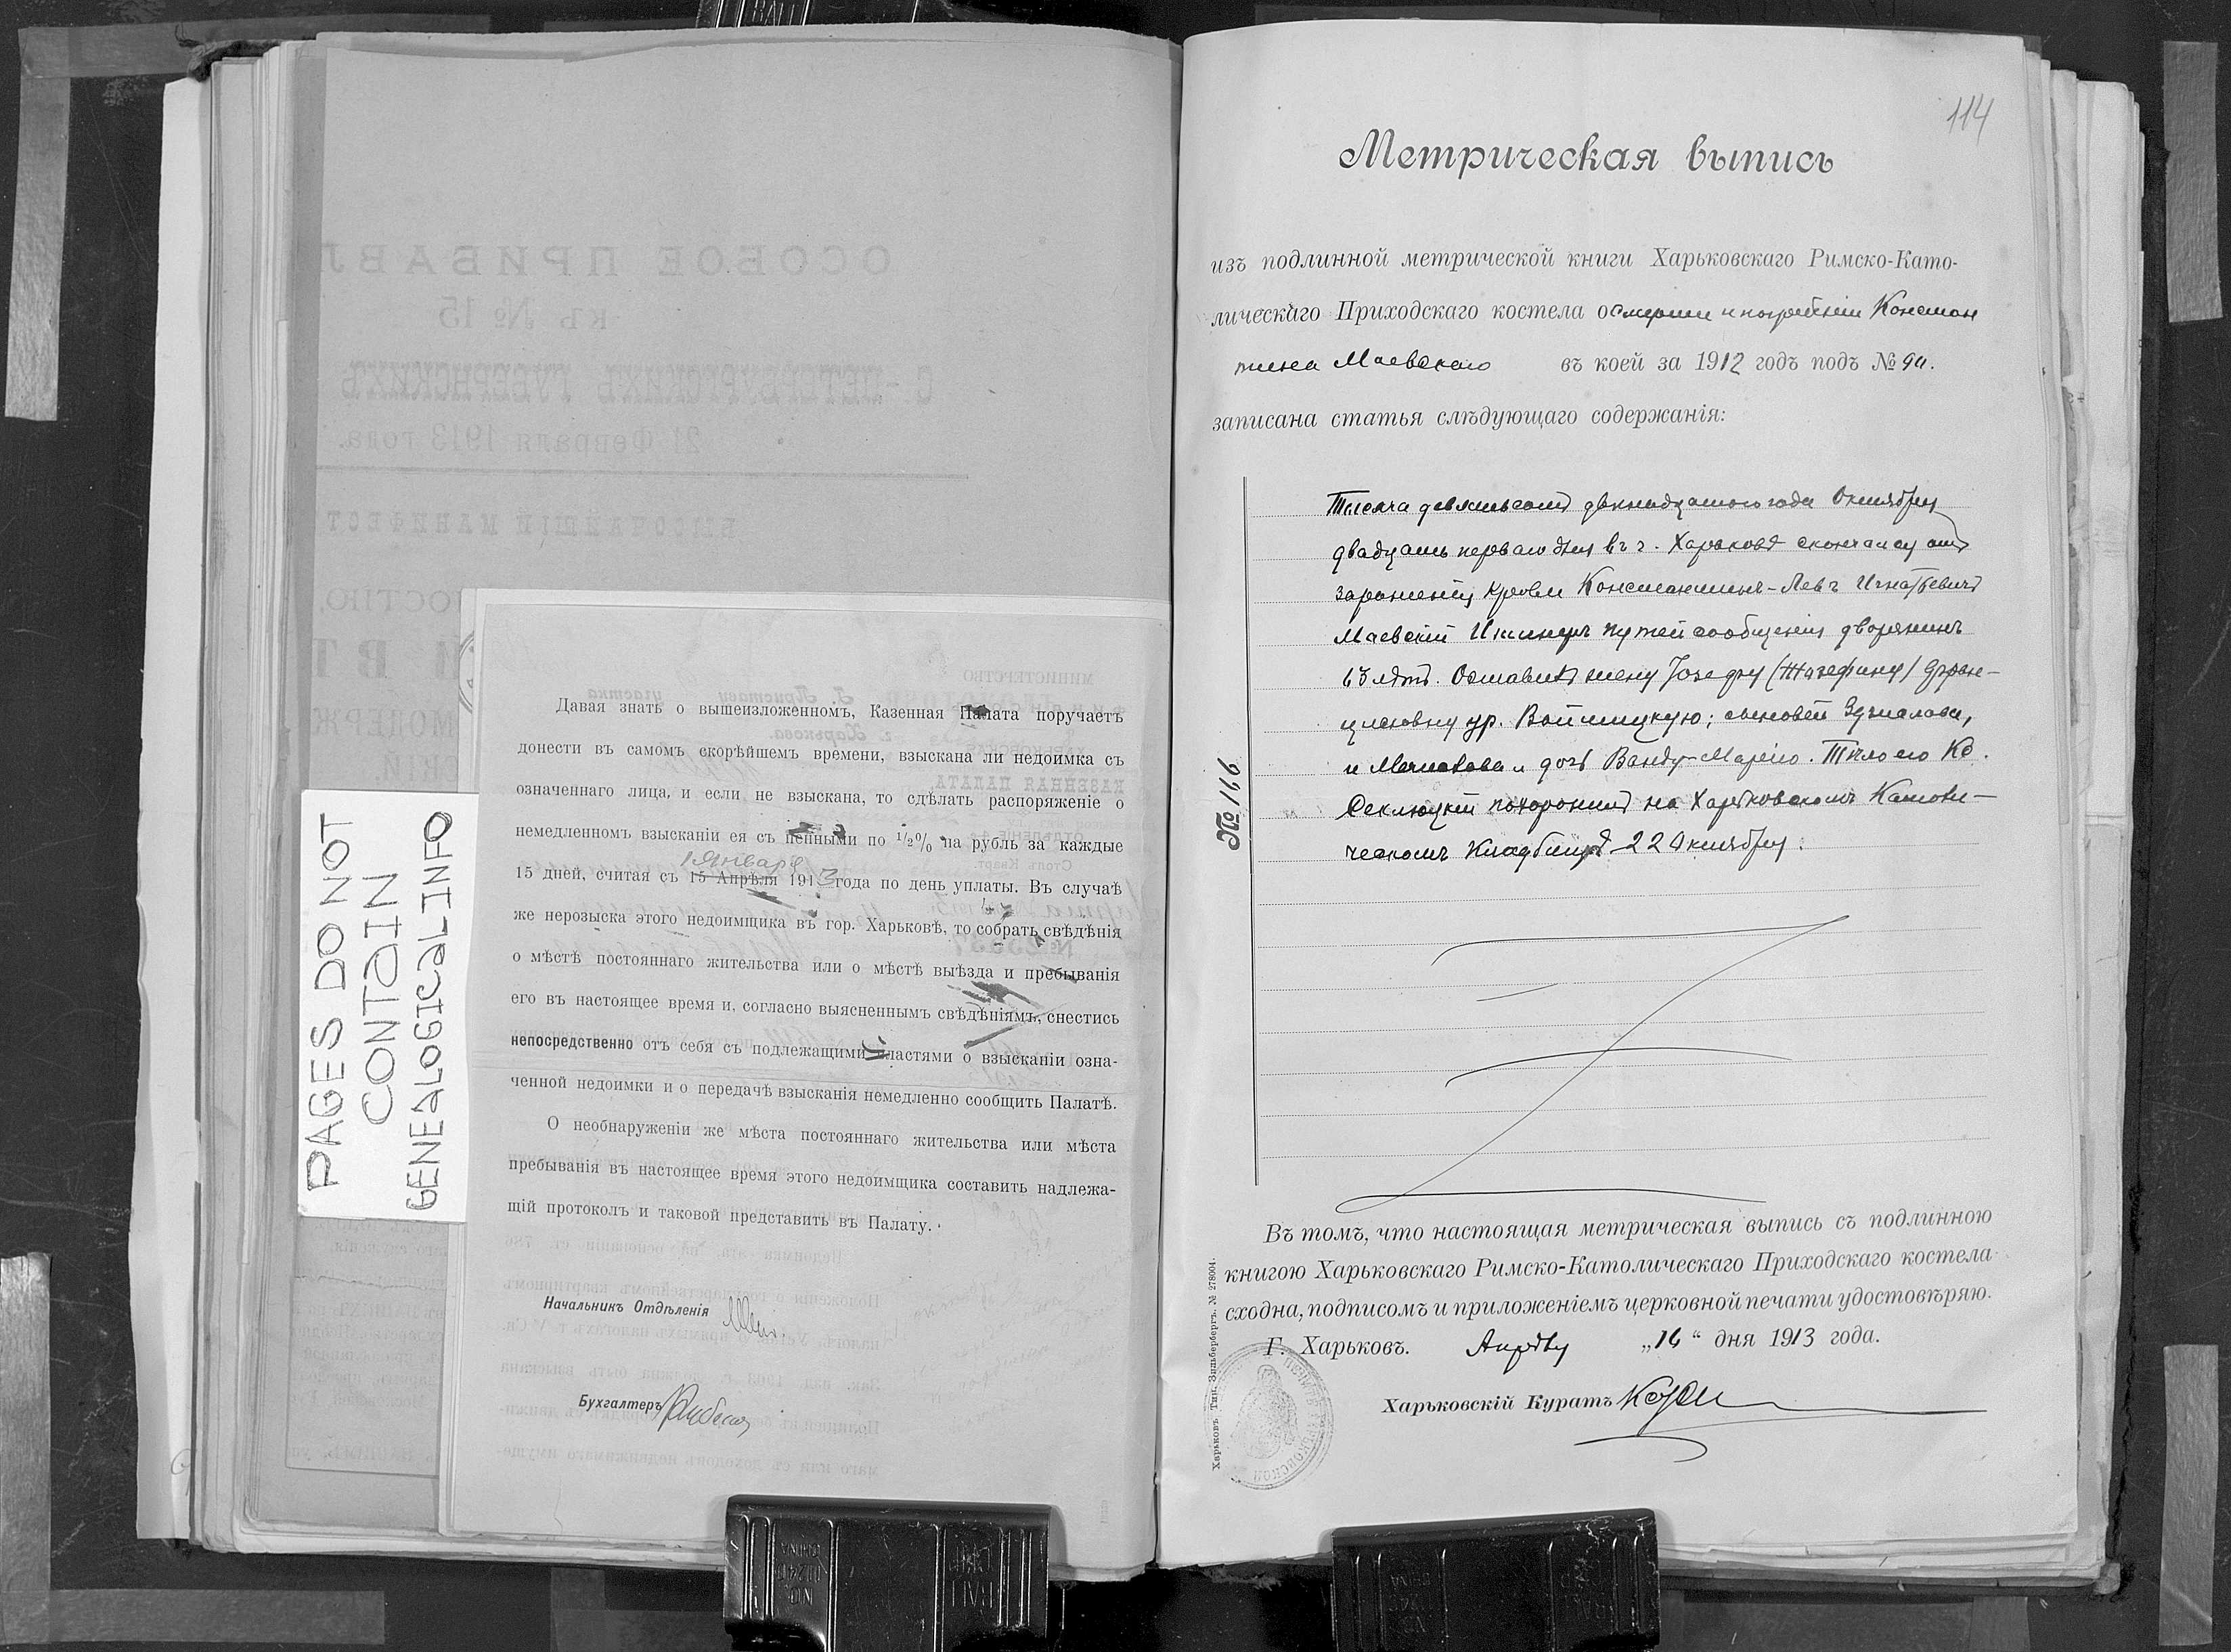 PAGES DO NOT
CONTAIN
GENEALOGICAL INFO
Давая знать о вышеизложенномъ, Казенная Палата поручаетъ
донести въ самомъ скорѣйшемъ времени, взыскана ли недоимка съ
означеннаго лица, и если не взыскана, то сдѣлать распоряженіе о
немедленномъ взысканіи ея съ пенными по ½% на рубль за каждые
1 Января
15 дней, считая съ 15 Апрѣля 1913 года по день уплаты. Въ случаѣ
же нерозыска этого недоимщика въ гор. Харьковѣ, то собрать свѣдѣнія
о мѣстѣ постояннаго жительства или о мѣстѣ выѣзда и пребыванія
его въ настоящее время и, согласно выясненнымъ свѣдѣніямъ, снестись
непосредственно отъ себя съ подлежащими властями о взысканіи озна-
ченной недоимки и о передачѣ взысканія немедленно сообщить Палатѣ.
О необнаруженіи же мѣста постояннаго жительства или мѣста
пребыванія въ настоящее время этого недоимщика составить надлежа-
щій протоколъ и таковой представить въ Палату.
Начальникъ Отдѣленія
Бухгалтеръ
114
Метрическая выпись
изъ подлинной метрической книги Харьковскаго Римско-Като-
лическаго Приходскаго костела о смерти и погребеніи Констан
тина Маевскаго въ коей за 1912 годъ подъ №
записана статья слѣдующаго содержанія:
№ 166
Тысяча девятьсотъ двѣнадцатого года Октября
двадцать перваго дня въ г. Харьковѣ скончался отъ
зараженія крови Константинъ-Левъ Игнатьевичъ
Маевскій Инженеръ путей сообщенія дворянинъ
63 лѣтъ. Оставилъ жену Іозефу (Жозефину) Фран-
цисковну ур. Войницкую; сыновей Здислава,
и Мечислава и дочь Ванду-Марію. Тѣло его Кс.
похороненъ на Харьковскомъ Католи-
ческомъ кладбищѣ 22 Октября.
Въ томъ, что настоящая метрическая выпись съ подлинною
книгою Харьковскаго Римско-Католическаго Приходскаго костела
сходна, подписомъ и приложеніемъ церковной печати удостовѣряю.
Г. Харьковъ. Апрѣля „16“ дня 1913 года.
Харьковскій Куратъ
Харьковъ. Тип. Зильбербергъ. № 278004.